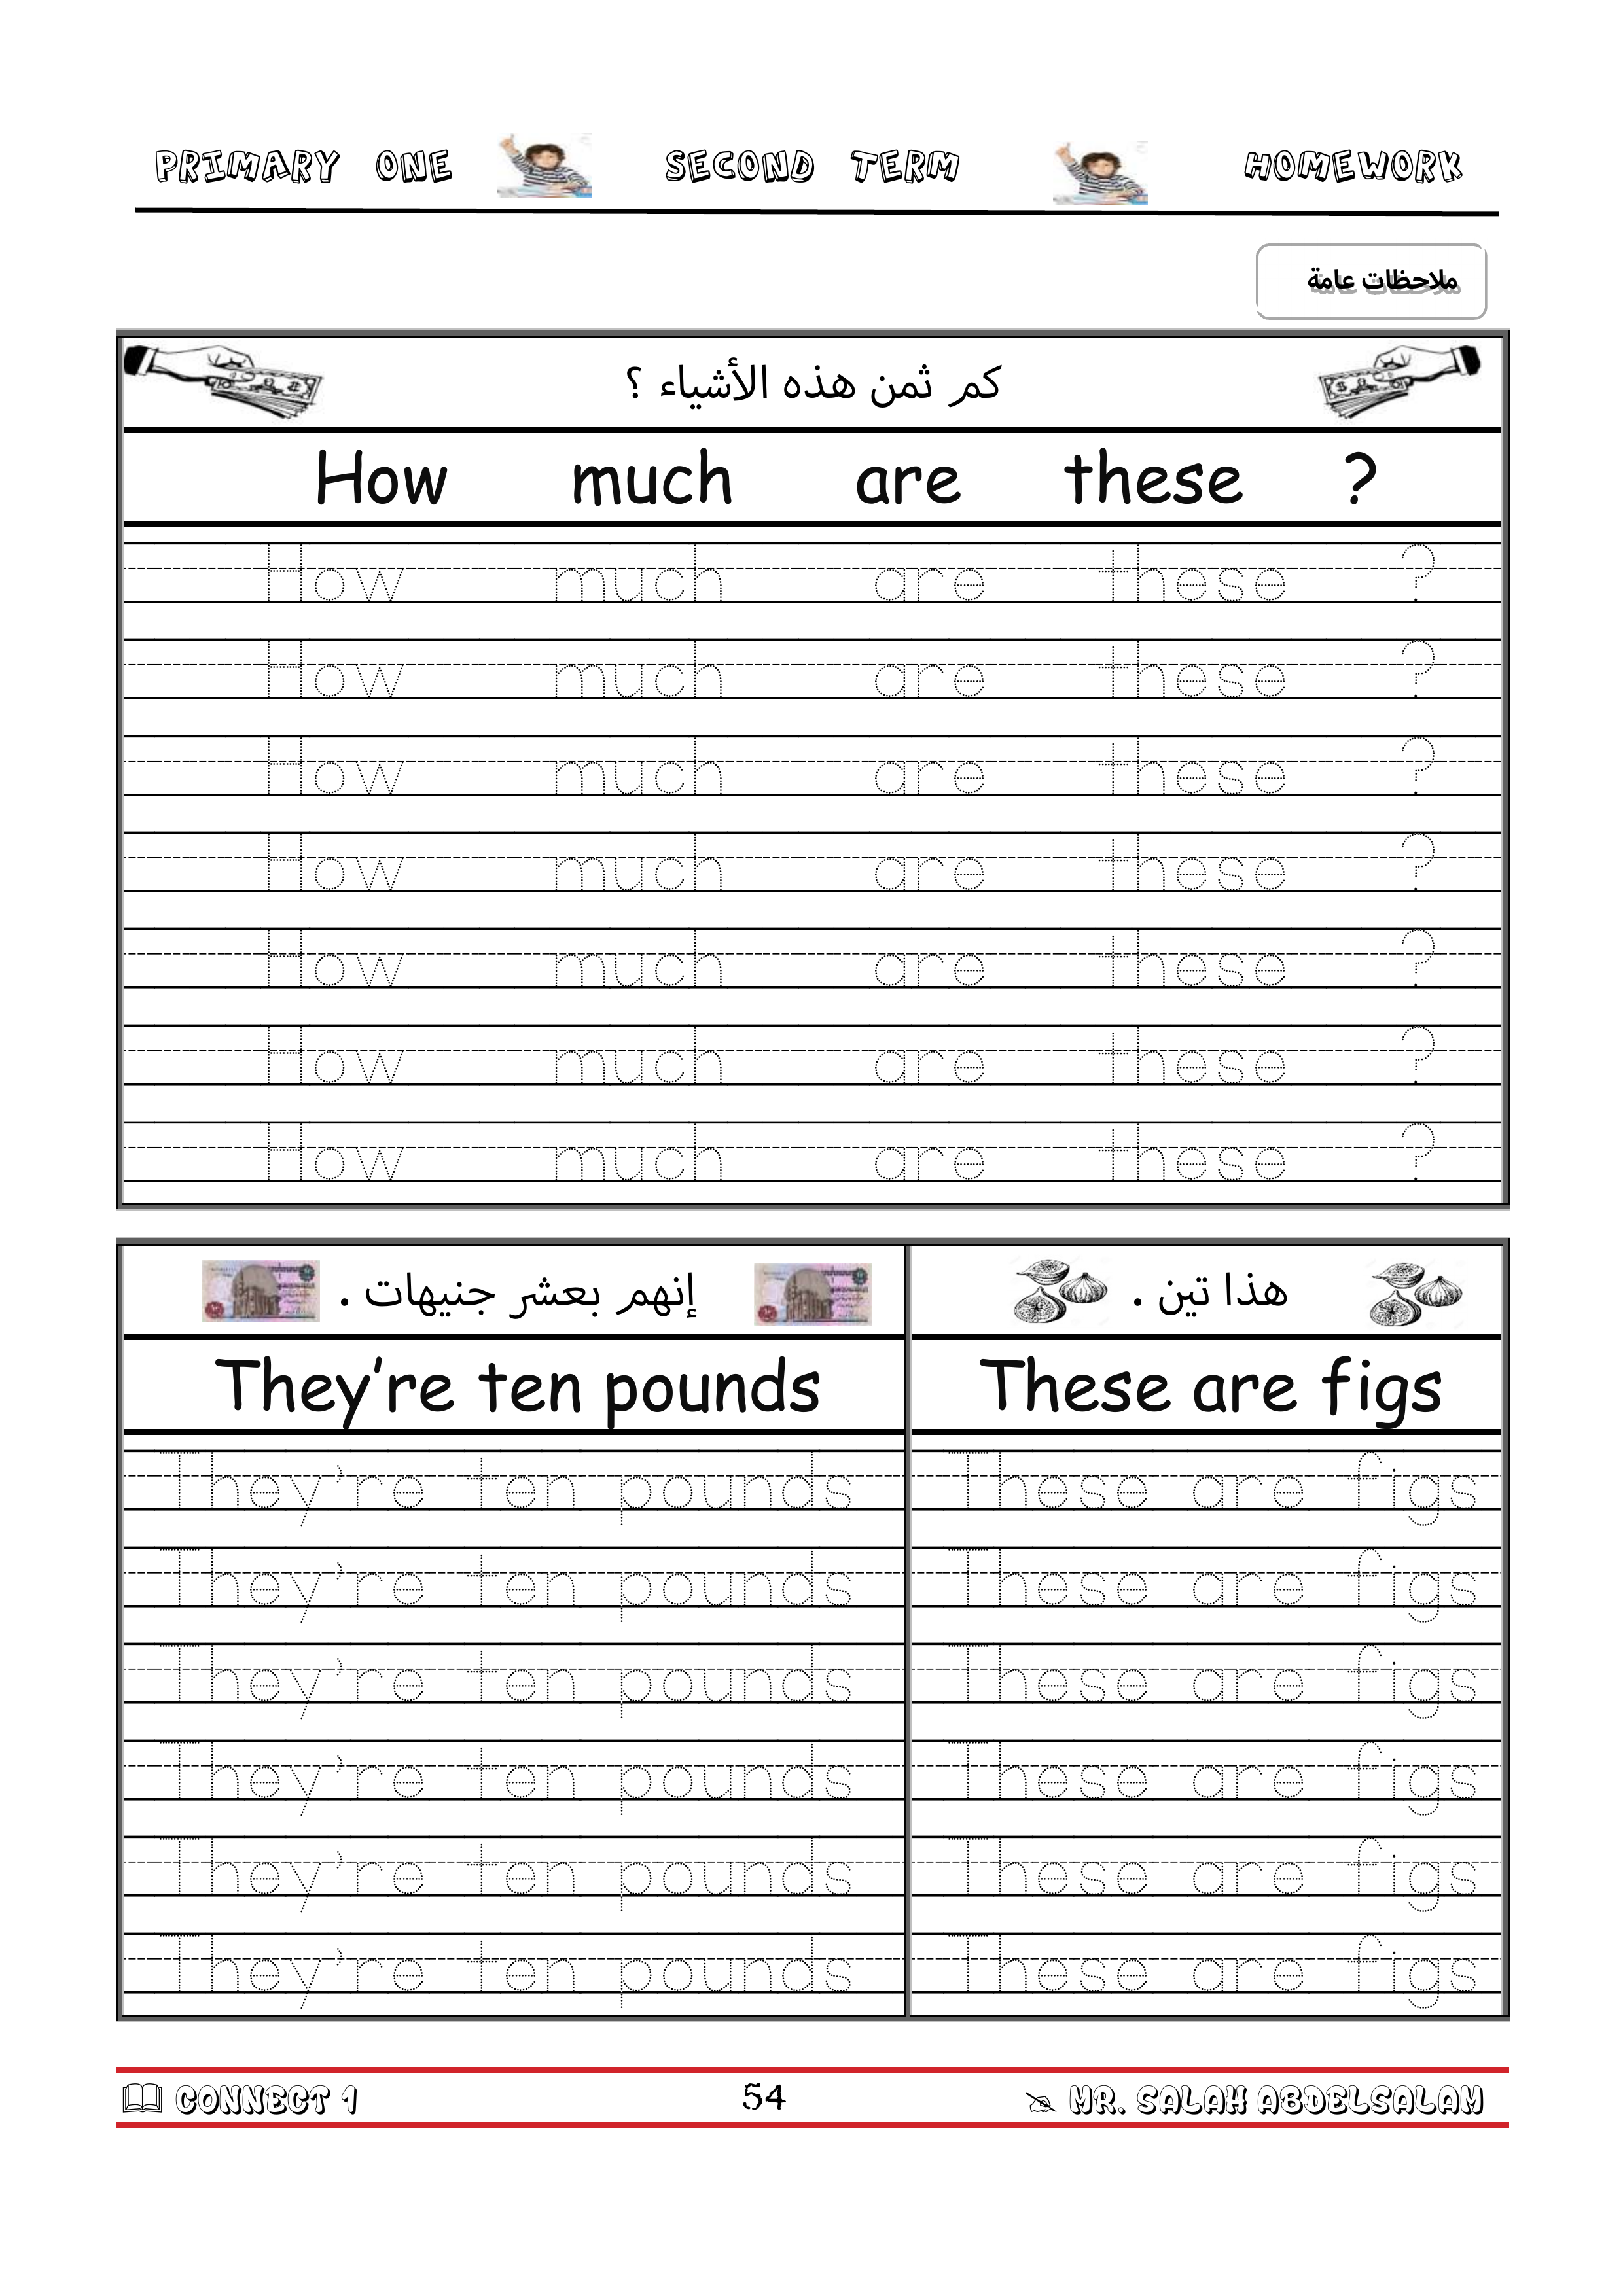 PRIMARY ONE SECOND TERM HOMEWORK
ملاحظات عامة
كم ثمن هذه الأشياء ؟
How much are these ?
How much are these ?
How much are these ?
How much are these ?
How much are these ?
How much are these ?
How much are these ?
How much are these ?
إنهم بعشر جنيهات .
They're ten pounds
They're ten pounds
They're ten pounds
They're ten pounds
They're ten pounds
They're ten pounds
They're ten pounds
هذا تين .
These are figs
These are figs
These are figs
These are figs
These are figs
These are figs
These are figs
CONNECT 1 54 MR. SALAH ABDELSALAM